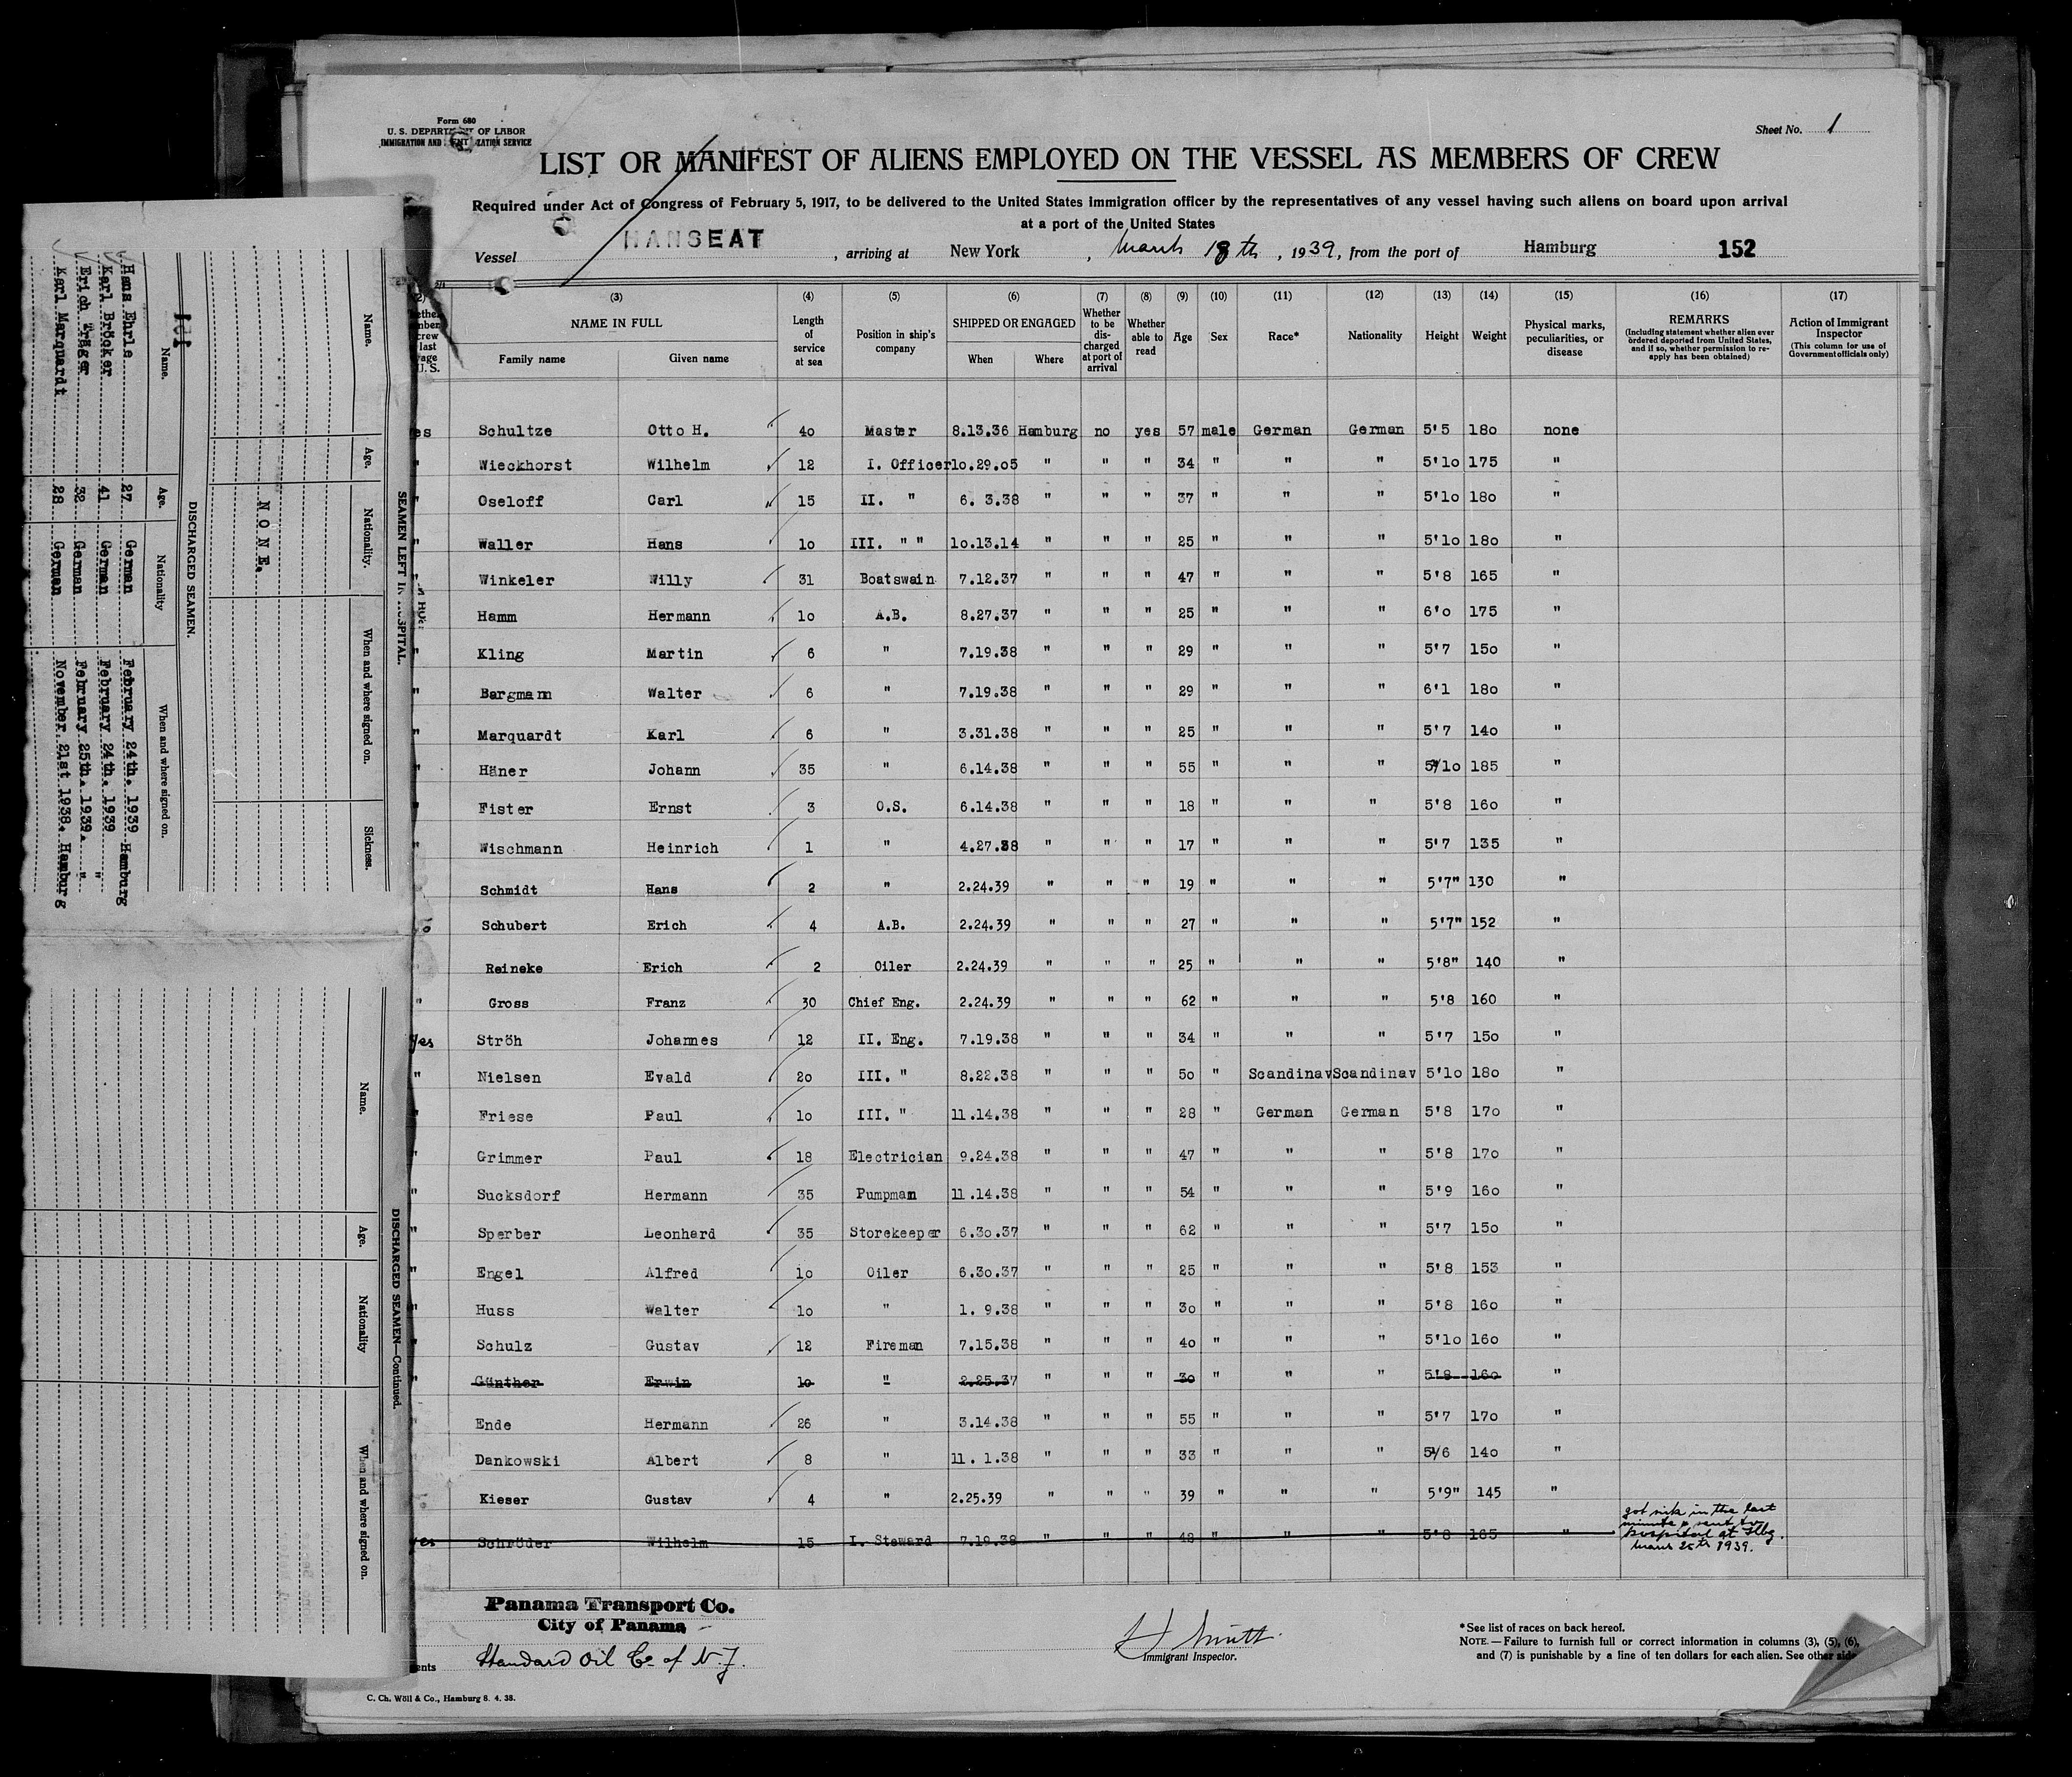 Form 680
U. S. DEPARTMENT OF LABOR
IMMIGRATION AND ZATION SERVICE
Sheet No. 1
LIST OR MANIFEST OF ALIENS EMPLOYED ON THE VESSEL AS MEMBERS OF CREW
Required under Act of Congress of February 5, 1917, to be delivered to the United States Immigration officer by the representatives of any vessel having such aliens on board upon arrival
at a port of the United States
Vessel HANSEAT , arriving at New York , March 18th , 1939, from the port of Hamburg 152
(2) (3) (4) (5) (6) (7) (8) (9) (10) (11) (12) (13) (14) (15) (16) (17)
NAME IN FULL Family name Given name Length of service at sea Position in ship's company SHIPPED OR ENGAGED When Where Whether to be discharged at port of arrival Whether able to read Age Sex Race* Nationality Height Weight Physical marks, peculiarities, or disease REMARKS (Including statement whether alien ever ordered deported from United States, and if so, whether permission to reapply has been obtained) Action of Immigrant Inspector (This column for use of Government officials only)
es Schultze Otto H. 40 Master 8.13.36 Hamburg no yes 57 male German German 5'5 180 none
" Wieckhorst Wilhelm 12 I. Officer 10.29.05 " " " 34 " " " 5'10 175 "
" Oseloff Carl 15 II. " 6. 3.38 " " " 37 " " " 5'10 180 "
" Waller Hans 10 III. " " 10.13.14 " " " 25 " " " 5'10 180 "
" Winkeler Willy 31 Boatswain 7.12.37 " " " 47 " " " 5'8 165 "
" Hamm Hermann 10 A.B. 8.27.37 " " " 25 " " " 6'0 175 "
" Kling Martin 6 " 7.19.38 " " " 29 " " " 5'7 150 "
" Bargmann Walter 6 " 7.19.38 " " " 29 " " " 6'1 180 "
" Marquardt Karl 6 " 3.31.38 " " " 25 " " " 5'7 140 "
" Häner Johann 35 " 6.14.38 " " " 55 " " " 5'10 185 "
" Fister Ernst 3 O.S. 6.14.38 " " " 18 " " " 5'8 160 "
" Wischmann Heinrich 1 " 4.27.38 " " " 17 " " " 5'7 135 "
Schmidt Hans 2 " 2.24.39 " " " 19 " " " 5'7" 130 "
o Schubert Erich 4 A.B. 2.24.39 " " " 27 " " " 5'7" 152 "
Reineke Erich 2 Oiler 2.24.39 " " " 25 " " " 5'8" 140 "
" Gross Franz 30 Chief Eng. 2.24.39 " " " 62 " " " 5'8 160 "
yes Ströh Johannes 12 II. Eng. 7.19.38 " " " 34 " " " 5'7 150 "
" Nielsen Evald 20 III. " 8.22.38 " " " 50 " Scandinav Scandinav 5'10 180 "
" Friese Paul 10 III. " 11.14.38 " " " 28 " German German 5'8 170 "
" Grimmer Paul 18 Electrician 9.24.38 " " " 47 " " " 5'8 170 "
" Sucksdorf Hermann 35 Pumpman 11.14.38 " " " 54 " " " 5'9 160 "
" Sperber Leonhard 35 Storekeeper 6.30.37 " " " 62 " " " 5'7 150 "
" Engel Alfred 10 Oiler 6.30.37 " " " 25 " " " 5'8 153 "
" Huss Walter 10 " 1. 9.38 " " " 30 " " " 5'8 160 "
" Schulz Gustav 12 Fireman 7.15.38 " " " 40 " " " 5'10 160 "
" Günther Erwin 10 " 2.25.37 " " " 30 " " " 5'8 160 "
" Ende Hermann 26 " 3.14.38 " " " 55 " " " 5'7 170 "
" Dankowski Albert 8 " 11. 1.38 " " " 33 " " " 5'6 140 "
Kieser Gustav 4 " 2.25.39 " " " 39 " " " 5'9" 145 "
yes Schröder Wilhelm 15 I. Steward 7.19.38 " " " 48 " " " 5'8 165 " got sick in the last
minute & sent to
hospital at Hbg.
1939.
Panama Transport Co.
City of Panama
ents Standard Oil Co of N.J.
H Smith
Immigrant Inspector.
*See list of races on back hereof.
NOTE.—Failure to furnish full or correct information in columns (3), (5), (6),
and (7) is punishable by a fine of ten dollars for each alien. See other side
C. Ch. Wöll & Co., Hamburg 8. 4. 38.
SEAMEN LEFT IN HOSPITAL.
Name. Age. Nationality. When and where signed on. Sickness.
NONE.
DISCHARGED SEAMEN.
Name. Age. Nationality When and where signed on.
Hans Ehrle 27 German February 24th. 1939 Hamburg
Karl Bröcker 41 German February 24th. 1939 "
Erich Träger 32 German February 25th. 1939. "
Karl Marquardt 28 German November 21st 1938. Hamburg
DISCHARGED SEAMEN—Continued.
Name. Age. Nationality When and where signed on.